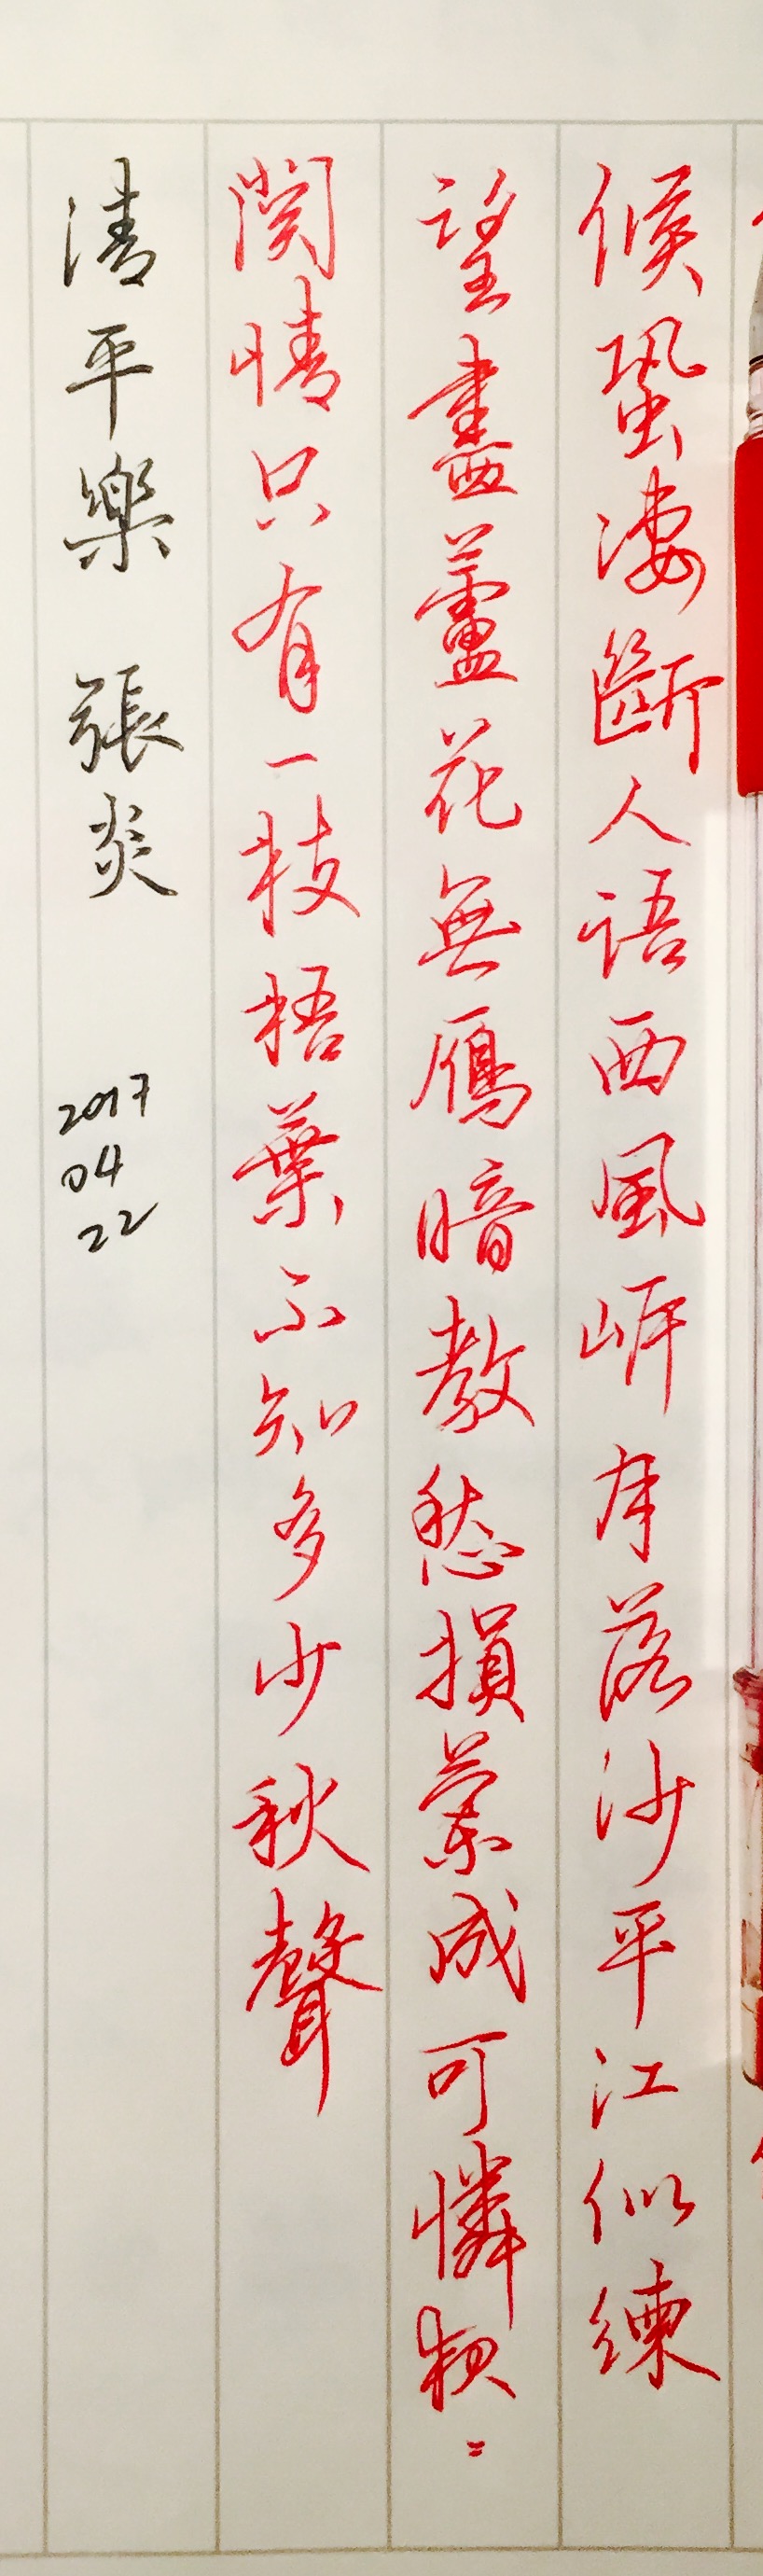 候蛩淒斷人語西風岸月落沙平江似練
望盡蘆花無鴈暗教愁損蘭成可憐夜〻
関情只有一枝梧葉不知多少秋聲
清平樂 張炎
2017
04
22